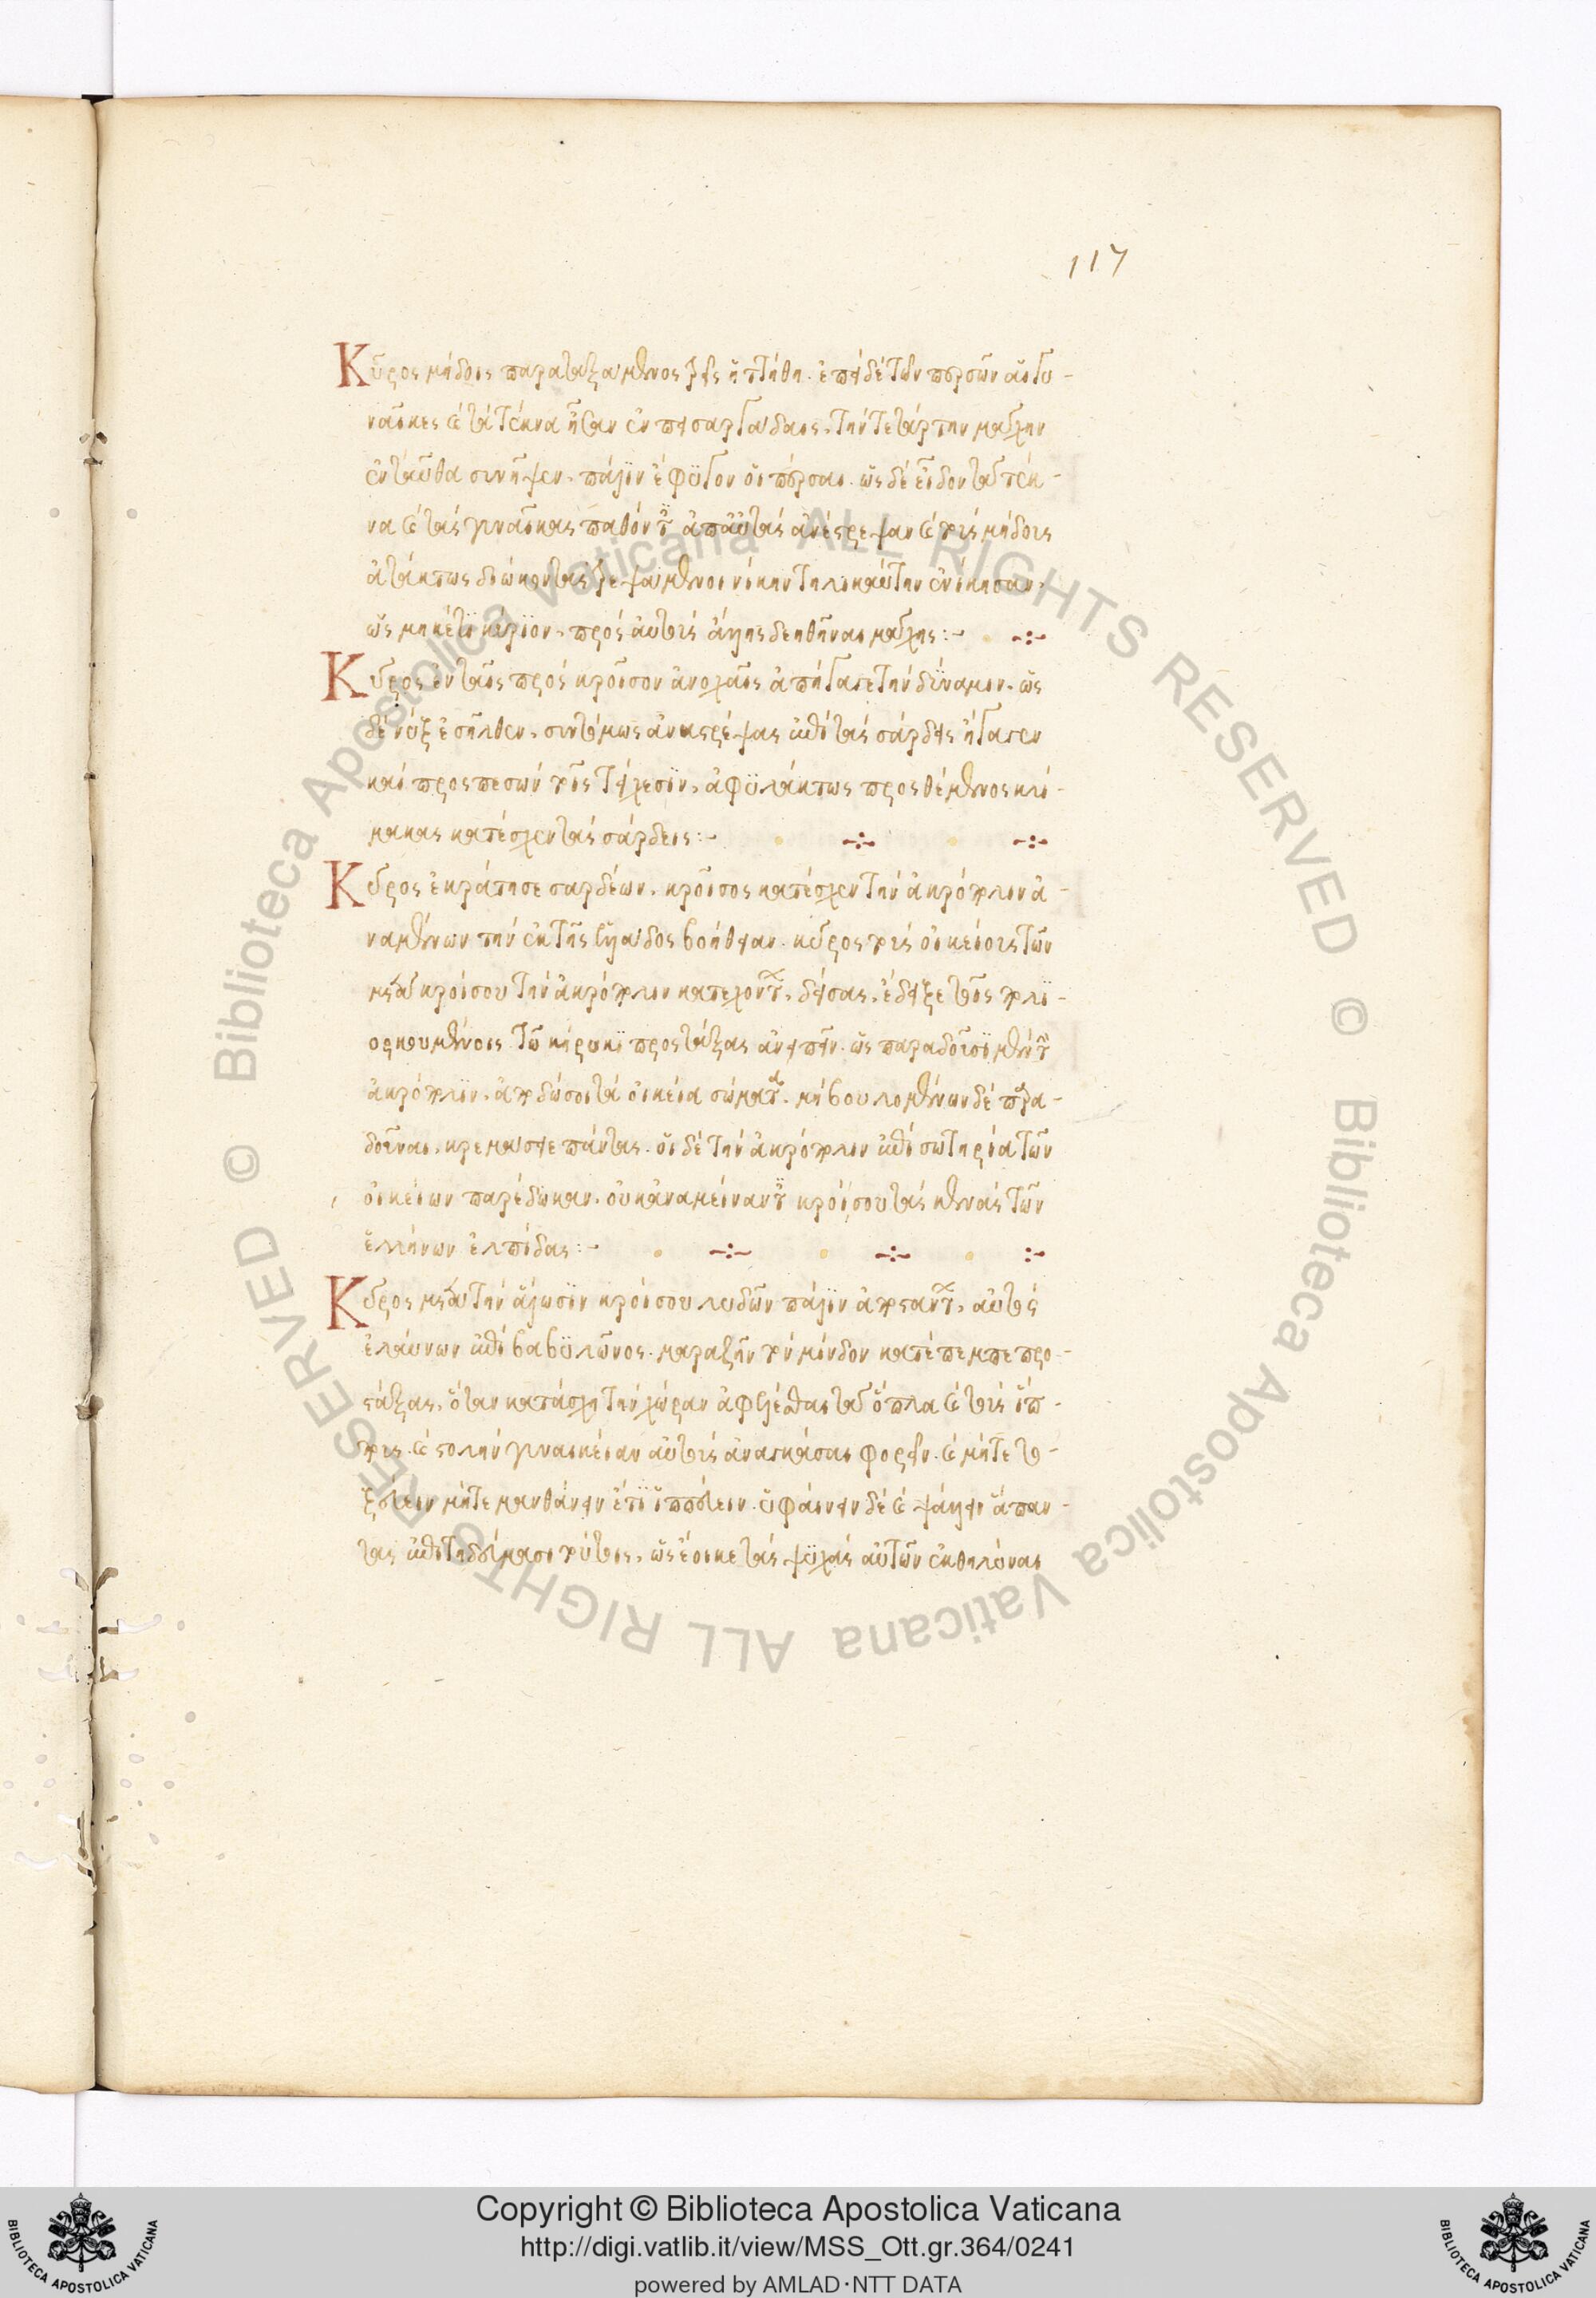 117
Κῦρος μήδοις παραταξάμενος τρὶς ἡττήθη. ἐπεὶ δὲ τῶν περσῶν αἱ γυ-
ναῖκες καὶ τὰ τέκνα ἦσαν ἐν πεισαργάδαις, τὴν τετάρτην μάχην
ἐνταῦθα συνῆψεν. πάλιν ἔφυγον οἱ πέρσαι. ὡς δὲ εἶδον τὰ τέκ-
να καὶ τὰς γυναῖκας παθόντες ἀπ' αὐτὰς ἀνέστρεψαν καὶ τοὺς μήδους
ἀτάκτως διώκοντας τρεψάμενοι νίκην τηλικαύτην ἐνίκησαν,
ὡς μηκέτι κύριον, πρὸς αὐτοὺς ἄλλης δεηθῆναι μάχης:-
Κῦρος ἐν ταῖς πρὸς κροῖσον ἀνοχαῖς ἀπήγαγε τὴν δύναμιν. ὡς
δὲ νὺξ ἐπῆλθεν, συντόμως ἀναστρέψας ἐπὶ τὰς σάρδεις ἤγαγεν
καὶ προσπεσὼν τοῖς τείχεσιν, ἀφυλάκτως προσθέμενος κλί-
μακας κατέσχεν τὰς σάρδεις:-
Κῦρος ἐκράτησε σαρδέων. κροῖσος κατέσχεν τὴν ἀκρόπολιν ἀ-
ναμένων τὴν ἐκ τῆς ἑλλάδος βοήθειαν. κῦρος τοὺς οἰκείους τῶν
μετὰ κροίσου τὴν ἀκρόπολιν κατεχόντων, δήσας, ἔδειξε τοῖς πολι-
ορκουμένοις τῶ κήρυκι προστάξας ἀνειπεῖν. ὡς παραδοῦσι μὲν τὴν
ἀκρόπολιν, ἀποδώσοι τὰ οἰκεῖα σώματα. μὴ βουλομένων δὲ παρα-
δοῦναι, κρεμάσειε πάντας. οἱ δὲ τὴν ἀκρόπολιν ἐπὶ σωτηρία τῶν
οἰκείων παρέδωκαν. οὐκ ἀναμείναντες κροίσου τὰς κενὰς τῶν
ἑλλήνων ἐλπίδας:-
Κῦρος μετὰ τὴν ἅλωσιν κροίσου λυδῶν πάλιν ἀποστάντων, αὐτὸς
ἐλαύνων ἐπὶ βαβυλῶνος. μαραζῆν τὸν μῖνδον κατέπεμπε προ-
στάξας, ὅταν κατάσχη τὴν χώραν ἀφελέσθαι τὰ ὅπλα καὶ τοὺς ἵπ-
πους. καὶ στολὴν γυναικείαν αὐτοὺς ἀναγκάσαι φορεῖν. καὶ μήτε το-
ξεύειν μήτε μανθάνειν ἔτι ἱππεύειν. ὑφαίνειν δὲ καὶ ψάλλειν ἅπαν-
τας ἐπιτηδεύμασι τούτοις, ὡς ἔοικε τὰς ψυχὰς αὐτῶν ἐκθηλύναι
Copyright © Biblioteca Apostolica Vaticana
http://digi.vatlib.it/view/MSS_Ott.gr.364/0241
powered by AMLAD·NTT DATA
BIBLIOTECA APOSTOLICA VATICANA
BIBLIOTECA APOSTOLICA VATICANA
© Biblioteca Apostolica Vaticana ALL RIGHTS RESERVED
© Biblioteca Apostolica Vaticana ALL RIGHTS RESERVED